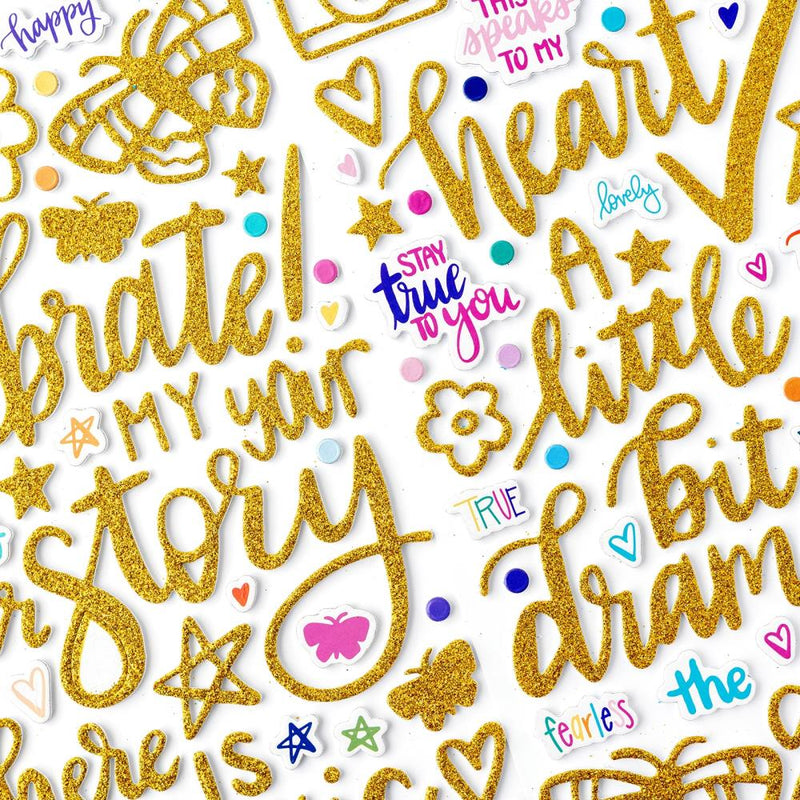 happy
THIS
speaks
TO MY
heart
lovely
STAY
true
TO you
A
little
bit
dram
brate!
MY
story
TRUE
fearless
the
here is